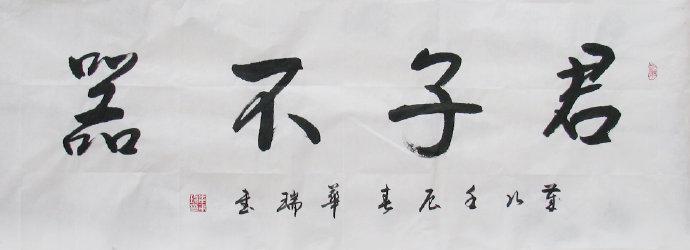 君子不器
歲次壬辰春華瑞書